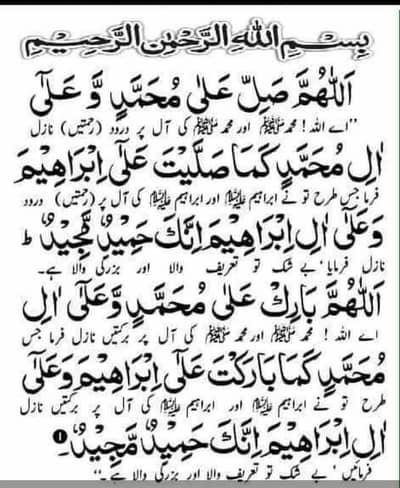 بِسْمِ اللهِ الرَّحْمٰنِ الرَّحِيْمِ
اَللّٰهُمَّ صَلِّ عَلٰى مُحَمَّدٍ وَّ عَلٰٓى
”اے اللہ ! محمد ﷺ اور محمد ﷺ کی آل پر درود (رحمتیں) نازل
اٰلِ مُحَمَّدٍ كَمَا صَلَّيْتَ عَلٰٓى اِبْرَاهِيْمَ
فرما جس طرح تو نے ابراہیم علیہ السلام اور ابراہیم علیہ السلام کی آل پر (رحمتیں) درود
وَعَلٰٓى اٰلِ اِبْرَاهِيْمَ اِنَّكَ حَمِيْدٌ مَّجِيْدٌ ط
نازل فرمایا ‘ بے شک تو تعریف والا اور بزرگی والا ہے۔
اَللّٰهُمَّ بَارِكْ عَلٰى مُحَمَّدٍ وَّعَلٰٓى اٰلِ
اے اللہ ! محمد ﷺ اور محمد ﷺ کی آل پر برکتیں نازل فرما جس
مُحَمَّدٍ كَمَا بَارَكْتَ عَلٰٓى اِبْرَاهِيْمَ وَعَلٰٓى
طرح تو نے ابراہیم علیہ السلام اور ابراہیم علیہ السلام کی آل پر برکتیں نازل
اٰلِ اِبْرَاهِيْمَ اِنَّكَ حَمِيْدٌ مَّجِيْدٌ۔ ①
فرمائیں ‘ بے شک تو تعریف والا اور بزرگی والا ہے۔“